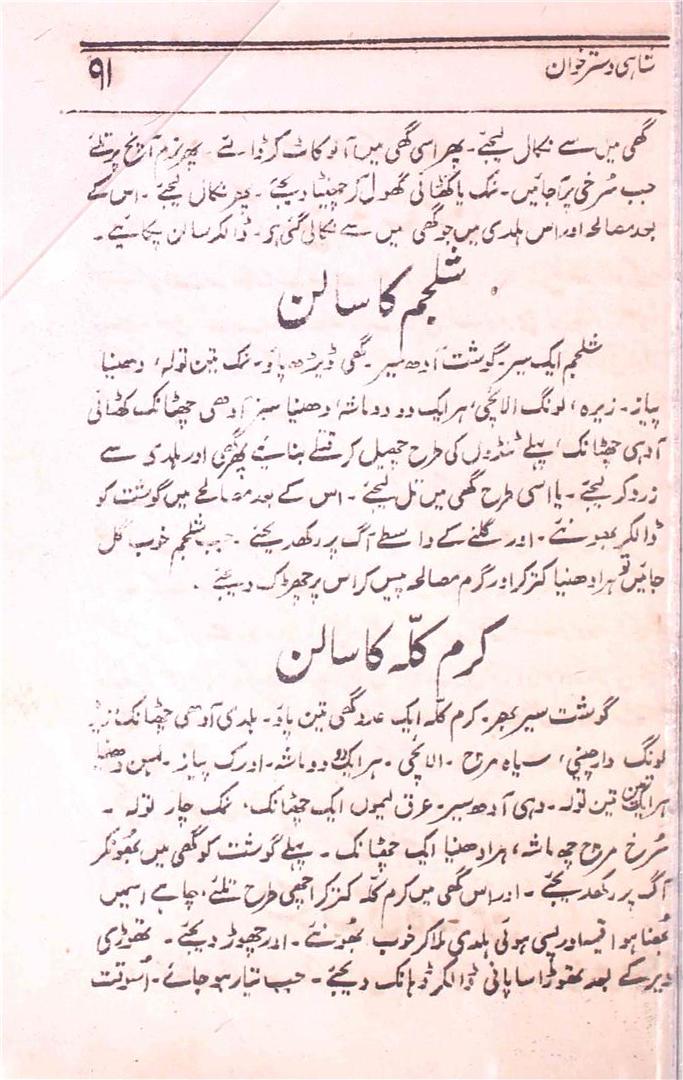 شاہی دسترخوان
۹۱
گھی میں سے نکال لیجئے۔ پھر اسی گھی میں آلو کاٹ کر ڈالئے۔ پھر نرم آنچ پر تلئے
جب سُرخی پر آجائیں۔ نمک یا کھٹائی گھول کر چھینٹا دیجئے۔ پھر نکال لیجئے۔ اس کے
بعد مصالحہ اور اس ہلدی میں جو گھی میں سے نکالی گئی ہو۔ ڈالکر سالن پکائیے۔
شلجم کا سالن
شلجم ایک سیر۔ گوشت آدھ سیر۔ گھی ڈیڑھ پاؤ۔ نمک تین تولہ، دھنیا
پیاز۔ زیرہ، لونگ الائچی، ہر ایک دو دو ماشہ، دھنیا سبز آدھی چھٹانک کھٹائی
آدہی چھٹانک، پہلے ٹنڈوں کی طرح چھیل کر قتلے بنائیے پھر گھی اور ہلدی سے
زرد کر لیجئے۔ یا اسی طرح گھی میں تل لیجئے۔ اس کے بعد مصالحے میں گوشت کو
ڈالکر بھونئے۔ اور گلنے کے واسطے آگ پر رکھدیجئے۔ جب شلجم خوب گل
جائیں تو ہرا دھنیا کتر کر اور گرم مصالحہ پیس کر اس پر چھڑک دیجئے۔
کرم کلّہ کا سالن
گوشت سیر بھر۔ کرم کلّہ ایک عدد گھی تین پاؤ۔ ہلدی آدھی چھٹانک، زیرہ
لونگ دارچینی، سیاہ مرچ۔ الائچی۔ ہر ایک دو دو ماشہ۔ ادرک پیاز۔ لہسن دھنیا
ہر ایک تین تین تولہ۔ دہی آدھ سیر۔ عرق لیموں ایک چھٹانک، نمک چار تولہ۔
سُرخ مرچ چھ ماشہ، ہرا دھنیا ایک چھٹانک۔ پہلے گوشت کو گھی میں بھونکر
آگ پر رکھدیجئے۔ اور اس گھی میں کرم کلّہ کتر کر اچھی طرح تلئے، چاہے اسمیں
بُھنا ہوا قیمہ اور پسی ہوئی ہلدی ملا کر خوب بھونئے۔ اور چھوڑ دیجئے۔ تھوڑی
دیر کے بعد تھوڑا سا پانی ڈالکر ڈہانک دیجئے۔ جب تیار ہو جائے۔ اسوقت